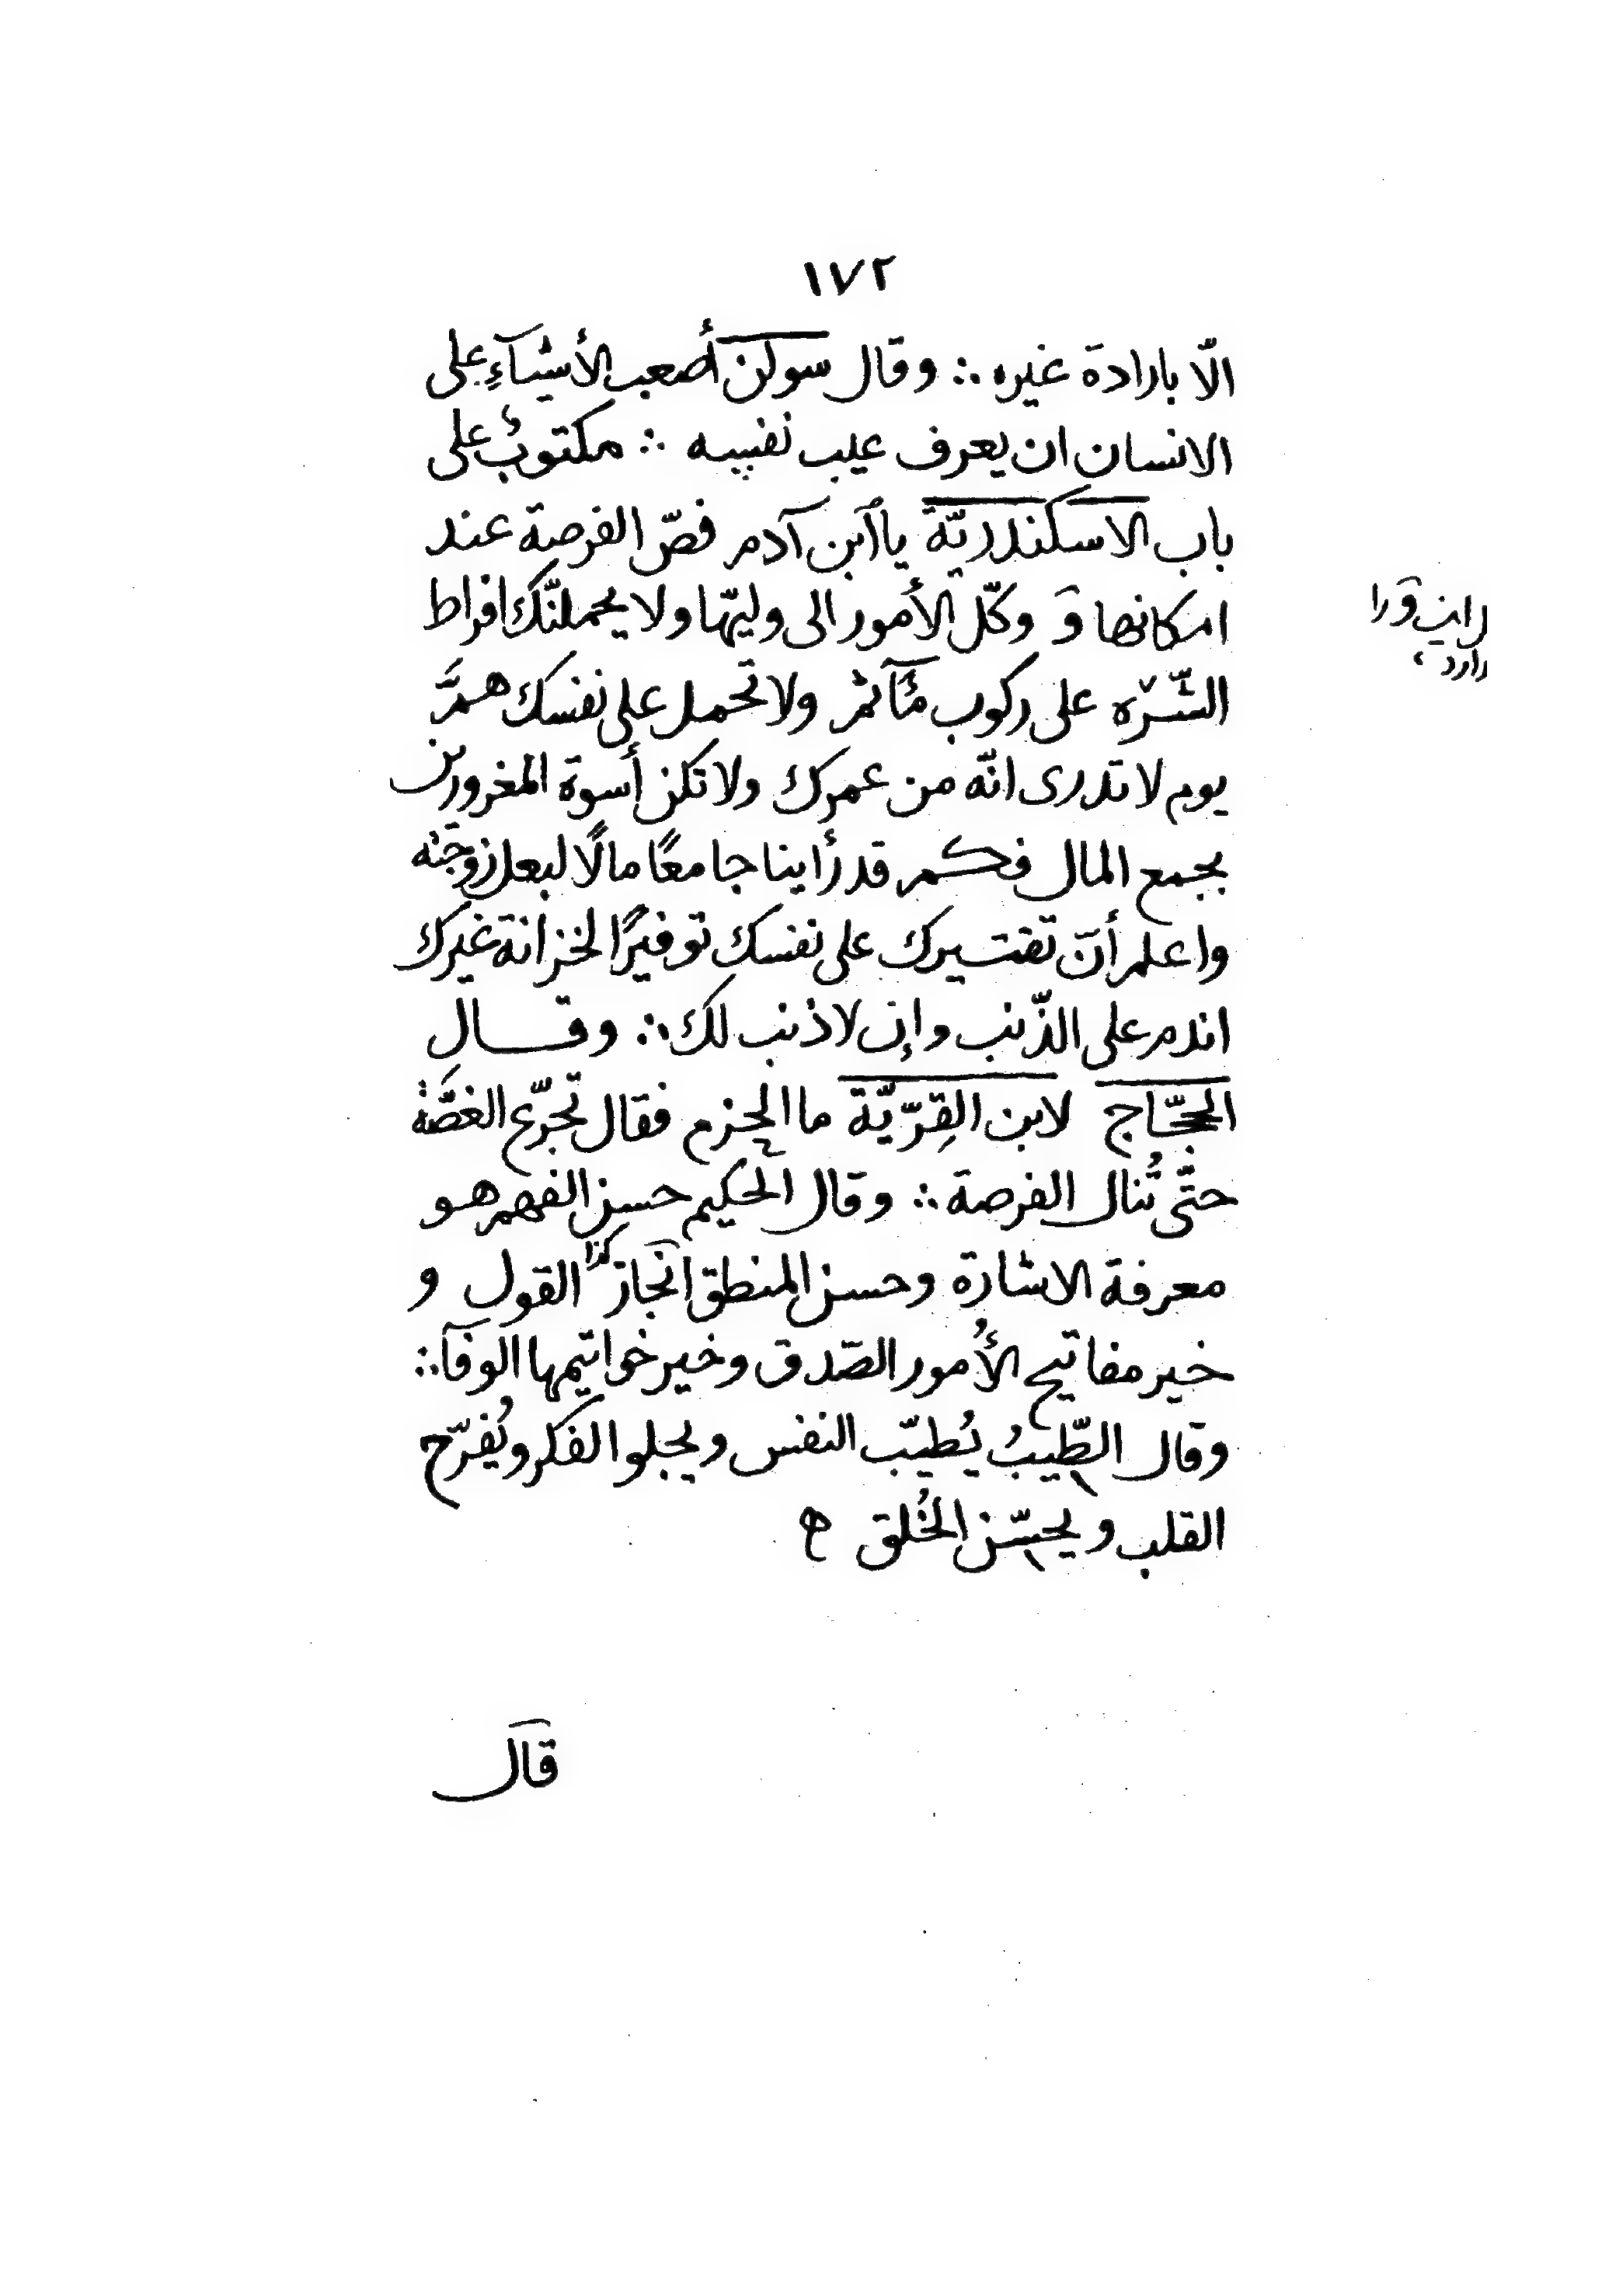 ١٧٢
الّا بارادة غيره ∴ وقال سولن أصعب الأشيآءِ على
الانسان ان يعرف عيب نفسه ∴ مكتوبٌ على
باب الاسكندريّة يا ٱبن آدم فصّ الفرصة عند
امكانها وَ وكّل الأمور الى وليّها ولا يحملنّك افراط
الشّرَه على ركوب مَآثم ولا تحمل على نفسك همَّ
يوم لا تدرى انّه من عمرك ولا تكن أسوة المغرورين
بجمع المال فكم قد رأينا جامعًا مالًا لبعل زوجته
واعلم أنّ تقتيرك على نفسك توفيرًا لخزانة غيرك
اندم على الذّنب وإن لا ذنب لك ∴ وقال
الحجّاج لابن القِرّيّة ما الحزم فقال تجرّع الغصّة
حتّى تُنال الفرصة ∴ وقال الحكيم حسن الفهم هو
معرفة الاشارة وحسن المنطق انجاز كذا القول و
خير مفاتيح الأُمور الصّدق وخير خواتيمها الوفآ ∴
وقال الطّيبُ يُطيّب النفس ويجلوا الفكر ويُفرّح
القلب ويحسّن الخُلق ه
قال